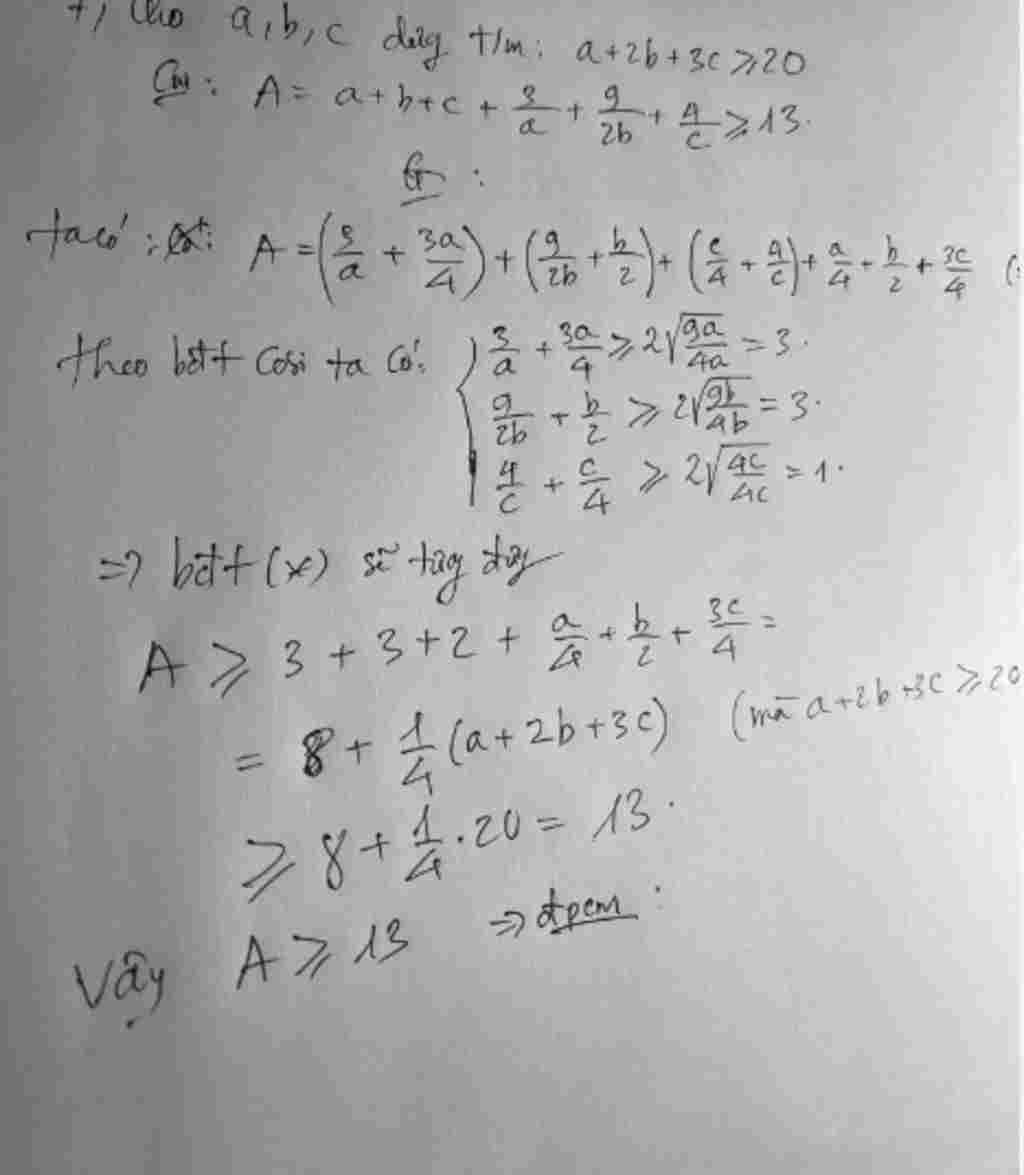 7) Cho a, b, c dương t/m: a+2b+3c ⩾ 20
Cm: A = a+b+c + 3/a + 9/2b + 4/c ⩾ 13.
G:
ta có: A = (3/a + 3a/4) + (9/2b + b/2) + (c/4 + 4/c) + a/4 + b/2 + 3c/4 (
theo bđt Cosi ta có:
3/a + 3a/4 ⩾ 2√(9a/4a) = 3.
9/2b + b/2 ⩾ 2√(9b/4b) = 3.
4/c + c/4 ⩾ 2√(4c/4c) = 1.
=> bđt (x) sẽ tương đương
A ⩾ 3 + 3 + 2 + a/4 + b/2 + 3c/4 =
= 8 + 1/4 (a+2b+3c) (mà a+2b+3c ⩾ 20
⩾ 8 + 1/4 . 20 = 13.
Vậy A ⩾ 13 => đpcm